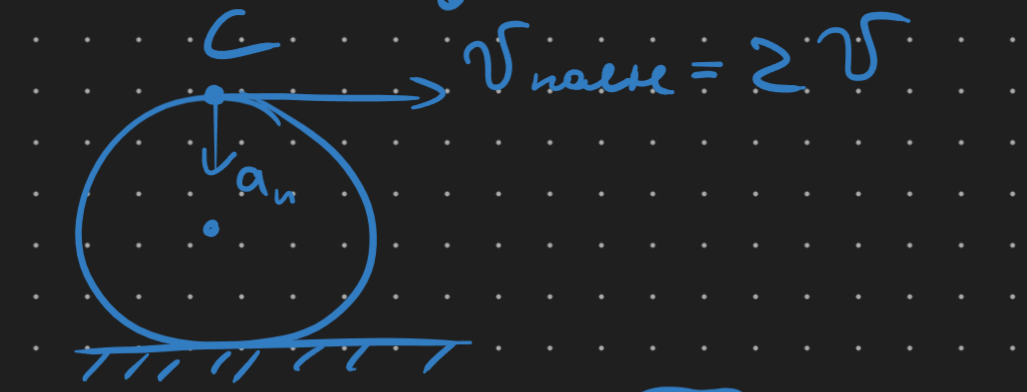 C
v полн = 2v
a n